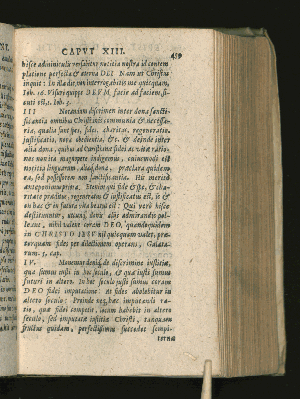 CAPVT XIII. 459
hisce adminiculis versabitur notitia nostra: id contem
platione perfecta & æterna DEI Nam ut Christus
inquit: In illa die non interrogabitis me quicquam,
Ioh. 16. Visuri quippe DEVM, facie ad faciem, si-
cuti est, 1. Ioh. 3.
III Notandum discrimen inter dona sancti-
ficantia omnibus Christianis communia & necessa-
ria, qualia sunt spes, fides, charitas, regeneratio,
justificatio, nova obedientia, &c. & deinde inter
alia dona, quibus ad Christianæ fidei
mes non ita magnopere indigemus,
tas linguarum, præclara quidem
ea, sed possessorem non sanctificantia.
anteponimus prima. Etenim qui fide & spe, & cha-
ritate præditus, regeneratus & justificatus est, is &
in hac & in futura vita beatus est: Qui verò hisce
destituuntur, etiamsi donis aliis admirandis pol-
leant, nihil tamen coram DEO, quandoquidem
in CHRISTO IESV nil quicquam valet, præ-
terquam fides per dilectionem operans, Galata-
rum. 5. cap.
IV. Monemur denique de discrimine iustitiæ,
quâ sumus iusti in hoc seculo, & quâ iusti sumus
futuri in altero. In hoc seculo justi sumus coram
DEO fidei imputatione: At fides abolebitur in
altero seculo: Proinde nec hæc imputandi ra-
tio, quæ fidei competit, locum habebit in altero
seculo, sed imputatæ iustitiæ Christi, tanquam
fructus quidam, perfectissimus succedet sempi-